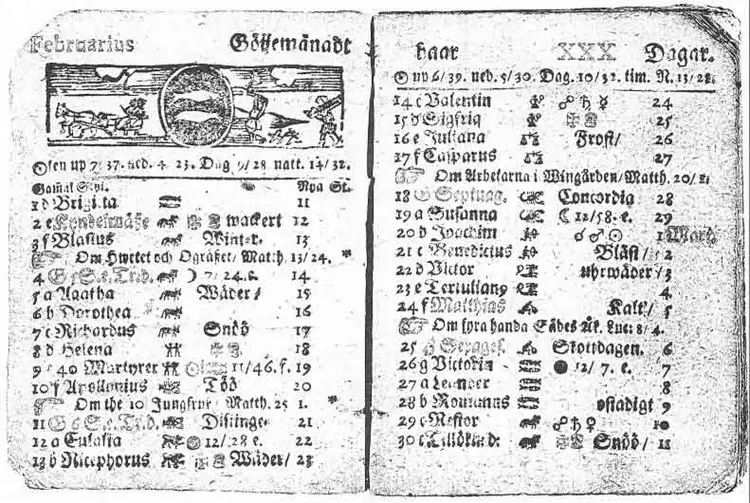 Februarius Göijemånadt
Solen up 7/37. ned. 4 23. Dag 9/28 natt. 14/32.
Gamal Styl. Nya St.
1 d Brigitta 11
2 e Kyndelmässe wackert 12
3 f Blasius Winter. 13
Om Hwetet och Ogräset/ Matth. 13/24.
4 G 5 S. e. Tr. d. 7/24. e. 14
5 a Agatha Wäder/ 15
6 b Dorothea 16
7 c Richardus Snöö 17
8 d Helena 18
9 e 40 Martyrer 11/46. f. 19
10 f Apollonius Töö 20
Om the 10 Jungfrur Matth. 25 1.
11 G 6 S. e. Tr. d. Distinge. 21
12 a Eulalia 12/28 e. 22
13 b Nicephorus Wäder/ 23
haar XXX Dagar.
☉ up 6/39. ned. 5/30. Dag. 10/32. tim. N. 13/28.
14 c Valentin ☍ ♄ ☿ 24
15 d Sigfrid 25
16 e Juliana Frost/ 26
17 f Casparus 27
Om Arbetarna i Wingården/ Matth. 20/1.
18 G Septuag. Concordia 28
19 a Susanna ☾ 12/58. e. 29
20 b Joachim ☌ ♂ ☉ 1 Mart.
21 c Benedictus Blåst/ 2
22 d Victor uhrwäder/ 3
23 e Tertulians 4
24 f Matthias Kalt/ 5
Om fyra handa Sädes Åk. Luc: 8/4.
25 G Sexages. Skottdagen. 6
26 g Victorin ● 12/ 7. e. 7
27 a Leander 8
28 b Romanus ostadigt 9
29 c Nestor ☍ ♄ ♀ 10
30 c Tillökn d: Snöö/ 11